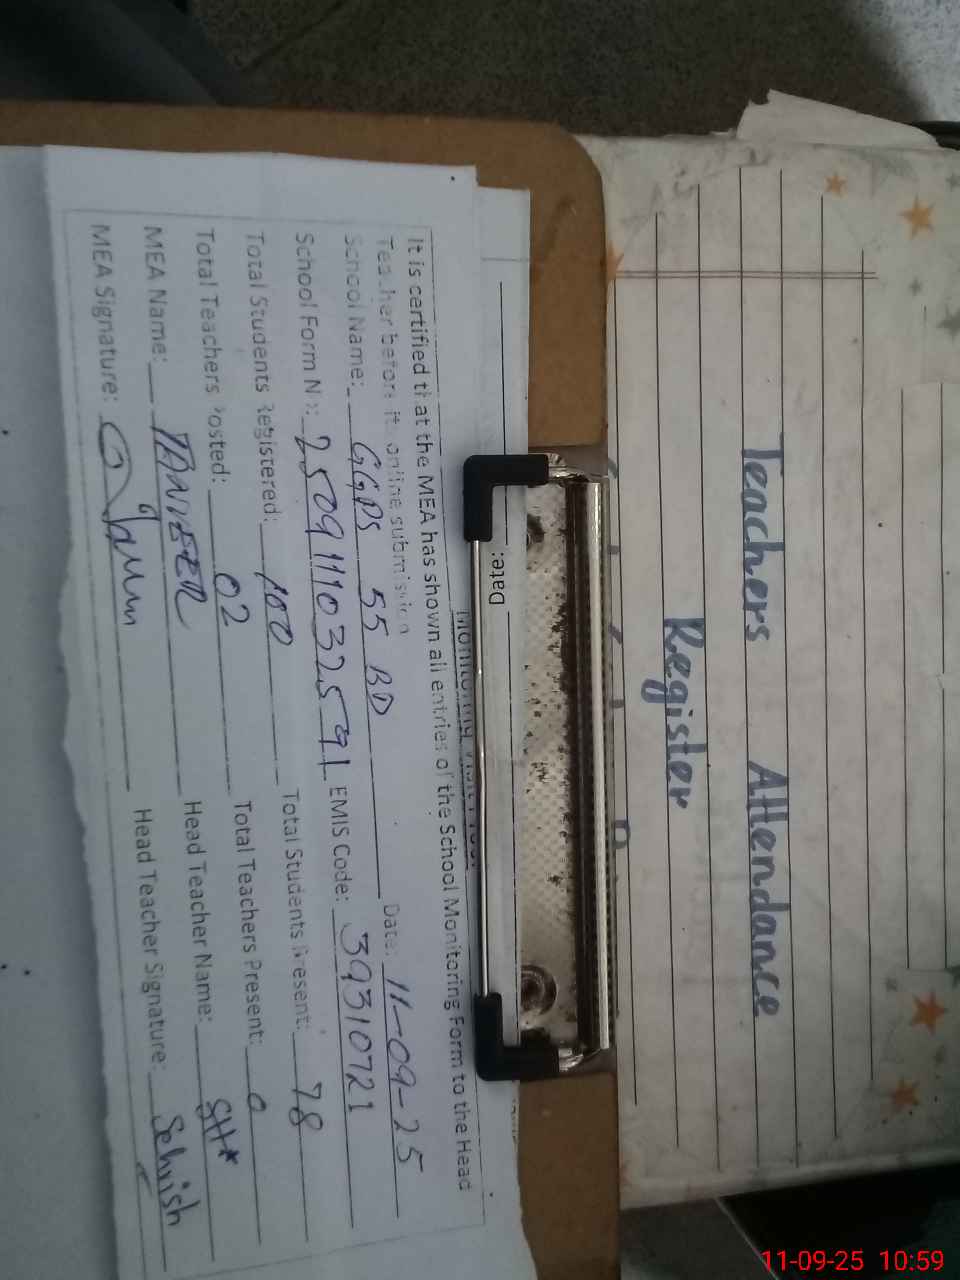 Teachers Attendance
Register
Date:
It is certified that the MEA has shown all entries of the School Monitoring Form to the Head
Teacher before it online submission
School Name: GGPS 55 BD Date: 11-09-25
School Form No: 2509111032591 EMIS Code: 39310721
Total Students Registered: 100 Total Students Present: 78
Total Teachers Posted: 02 Total Teachers Present: 0
MEA Name: TANVEER Head Teacher Name: SH*
MEA Signature: Head Teacher Signature: Sehrish
11-09-25 10:59